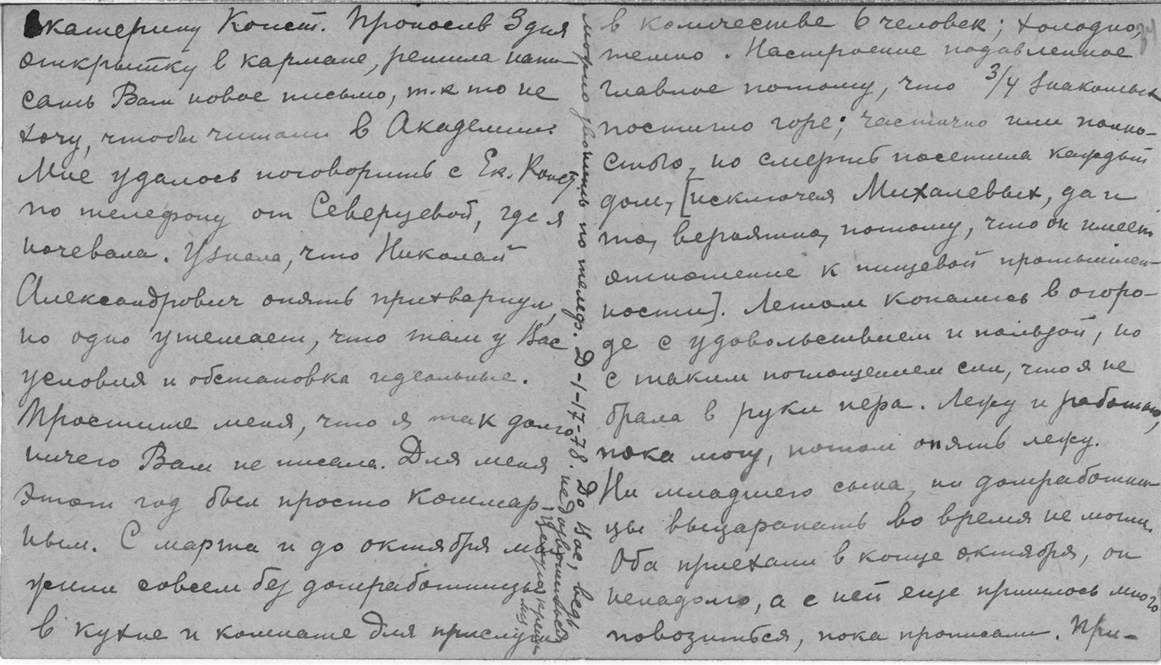 Екатерину Конст. Проносив 3 дня
открытку в кармане, решила напи-
сать Вам новое письмо, т.к то не
хочу, чтобы читали в Академии.
Мне удалось поговорить с Ек. Конст
по телефону от Северцевой, где я
ночевала. Узнала, что Николай
Александрович опять прихварнул,
но одно утешает, что там у Вас
условия и обстановка идеальные.
Простите меня, что я так долго
ничего Вам не писала. Для меня
этот год был просто кошмар
ным. С марта и до октября мы
жили совсем без домработницы
в кухне и комнате для прислуги
можно звонить по телеф. Д-1-17-78. До Вас, ведь
не дозвонишься
в количестве 6 человек; холодно,
темно. Настроение подавленное
главное потому, что 3/4 знакомых
постигло горе; частично или полно-
стью, но смерть посетила каждый
дом, [исключая Михалевых, да и
то, вероятно, потому, что он имеет
отношение к пищевой промышлен-
ности]. Летом копались в огоро-
де с удовольствием и пользой, но
с таким поглощением сил, что я не
брала в руки пера. Лежу и работаю,
пока могу, потом опять лежу.
Ни младшего сына, ни домработни-
цы выцарапать во время не могли
Оба приехали в конце октября, он
ненадолго, а с ней еще пришлось много
повозиться, пока прописали. При-